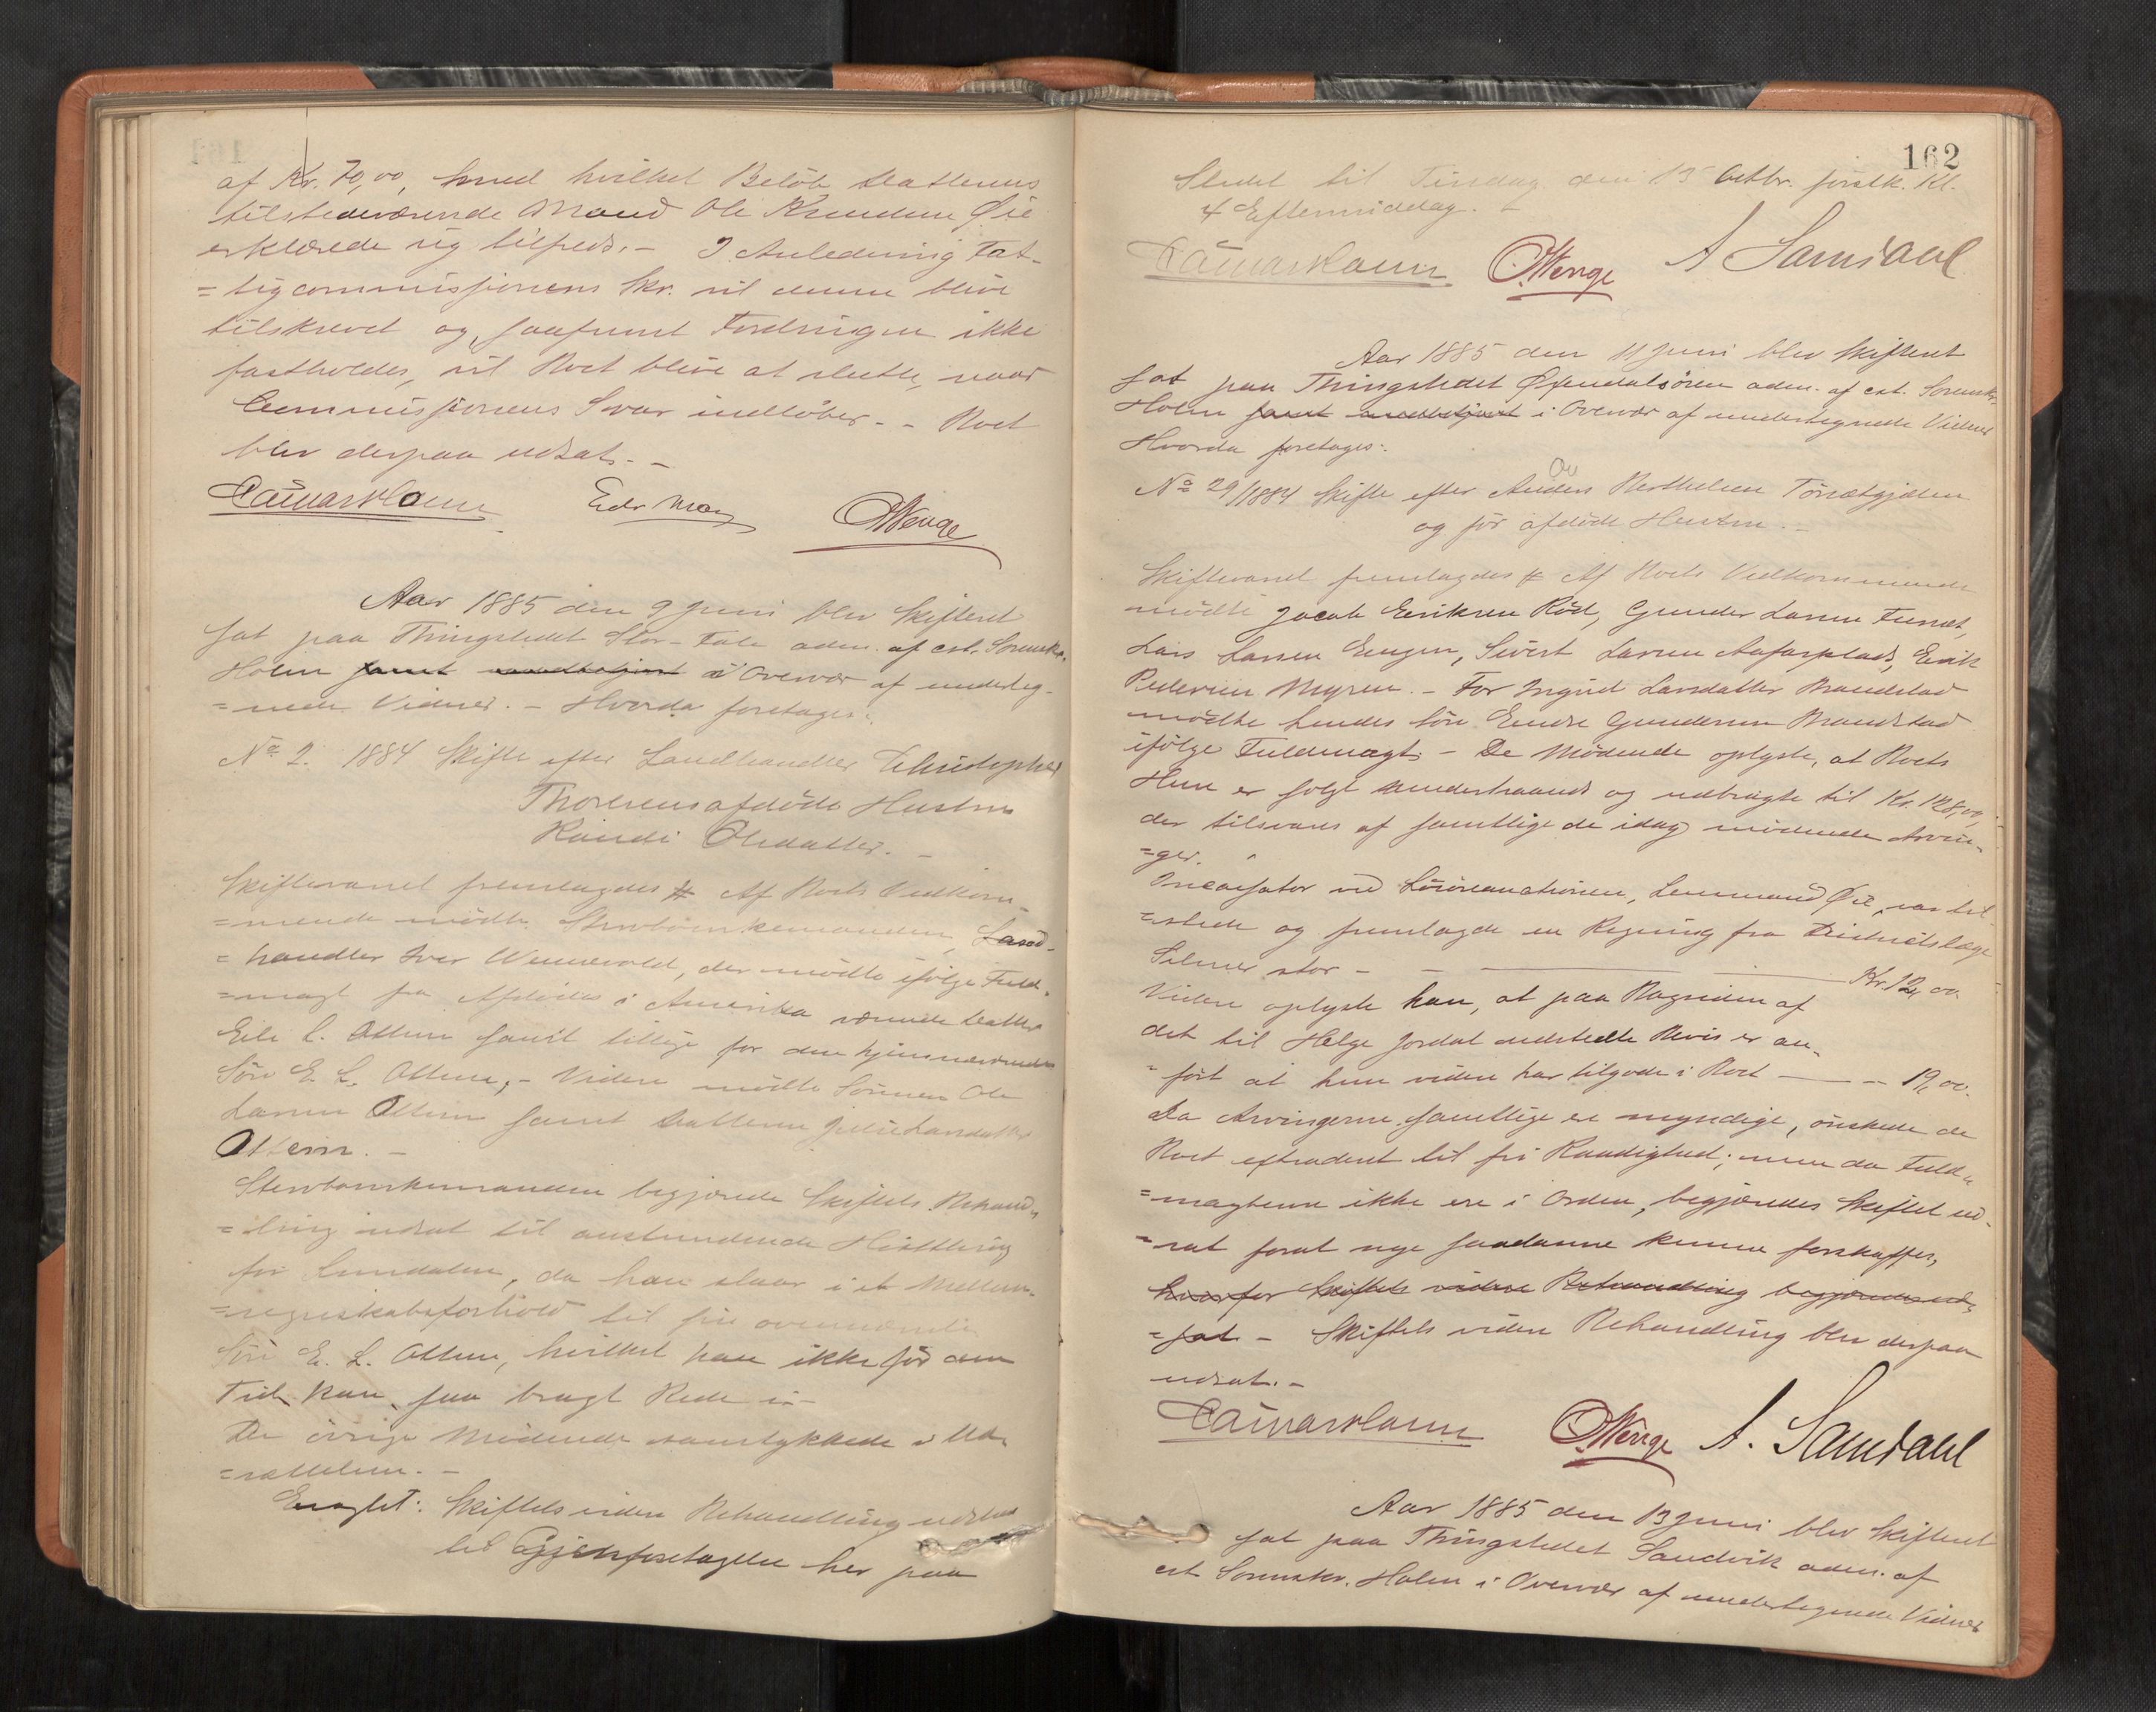 af Kr. 70,00, hvmed hvilket Beløb Datterens
tilstedeværende Mand Ole Knudsen Øie
erklærede sig tilfreds. - I Anledning Fat-
=tigcommissjonens Skr. vil denne blive
tilskrevet og, saafremt Fordringen ikke
fastholdes, vil Boet blive at slutte, naar
Commissjonens Svar indløber. - Boet
blev derpaa udsat. -
Edv. Mo OWenge
Aar 1885 den 9 Juni blev Skifteret
sat paa Thingstedet Stor-Fale adm. af cst. Sorenskr.
Holm samt i Overvær af underteg-
=nede Vidner. - Hvorda foretages:
No 2. 1884 Skifte efter Landhandler Christopher
Thoresens afdøde Hustru
Randi Olsdatter. -
Skiftevanel fremlagdes # Af Boets Vedkom-
=mende mødte Stervboenkemanden, Land-
=handler Iver Wennevold, der mødte ifølge Fuld-
=magt fra Afdødes i Amerika værende Datter
Eli L. Ottem samt tillige for den hjemmeværende
Søn E. L. Ottem, - Videre mødte Sønnen Ole
Larsen Ottem samt Datteren Julie Larsdatter
Ottem. -
Stervboenkemanden begjærede Skiftets Behand-
=ling udsat til anstundende Høstthing
for Sundalen, da han staar i et Mellem-
=regnskabsforhold til sin ovennævnte
Søn E. L. Ottem, hvilket han ikke før den
Tid kan faa bragt Rede i -
De øvrige Mødende samtykkede i Ud-
=sættelsen. -
Eragtet: Skiftets videre Behandling udstaar
til Gjenforetagelse her paa
162
Stedet til Tirsdag den 13 Octbr. førstk. Kl.
4 Eftermiddag. -
OWenge A Samdahl
Aar 1885 den 11 Juni blev Skifteret
sat paa Thingstedet Øxendalsøren adm. af cst. Sorenskr.
Holm samt i Overvær af undertegnede Vidner
Hvorda foretages:
No 29/1884 Skifte efter Anders Berthelsen
og før afdøde Hustru. -
Skiftevanel fremlagdes # Af Boets Vedkommende
mødte Jacob Eriksen Röd, Gunder Larsen
Lars Larsen Engen, Sivert Larsen Erik
Pedersen Myren. - For Ingrid Larsdatter Brandstad
mødte hendes Søn Endre Gundersen Brandstad
ifølge Fuldmagt. - De Mødende oplyste, at Boets
Huse er solgt underhaands og udbragte til Kr. 128,00,
der tilsvares af samtlige de idag mødende Arvin-
=ger.
Incassator ved Løsøreauctionen, Lensmand Øie, var til
=stede og fremlagde en Regning fra Districtslæge
Selmer stor - - Kr. 12,00
Videre oplyste han, at paa Bagsiden af
det til Helge Jordal udstedte Bevis er an-
=ført at hun viden har tilgode i Boet - - 19,00.
Da Arvingerne samtlige ere myndige, ønskede de
Boet extraderet til fri Raadighed; men da Fuld-
=magterne ikke ere i Orden, begjæredes Skiftet ud-
=sat forat nye saadanne kunne forskaffes,
hvorfor Skiftets videre Behandling begjæredes ud-
=sat - Skiftets videre Behandling blev derpaa
udsat. -
OWenge A. Samdahl
Aar 1885 den 13 Juni blev Skifteret
sat paa Thingstedet Sandvik adm. af
cst Sorenskr. Holm i Overvær af undertegnede Vidner